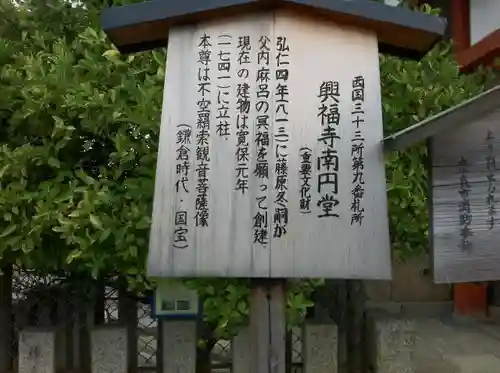 西国三十三所第九番札所
興福寺南円堂
(重要文化財)
弘仁四年(八一三)に藤原冬嗣が
父内麻呂の冥福を願って創建.
現在の建物は寛保元年
(一七四一)に立柱.
本尊は不空羂索観音菩薩像
(鎌倉時代・国宝)